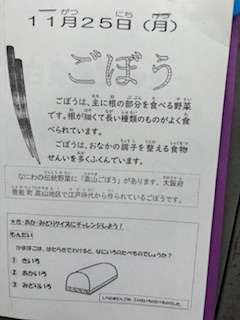 11月25日（月）
ごぼう
ごぼうは、主に根の部分を食べる野菜
です。根が細くて長い種類のものがよく食
べられています。
ごぼうは、おなかの調子を整える食物
せんいを多くふくんでいます。
なにわの伝統野菜に「高山ごぼう」があります。大阪府
豊能町高山地区で江戸時代から作られているごぼうです。
にチャレンジしよう！
もんだい
かまぼこは、はたらきでわけると、なにいろのたべものでしょうか？
① きいろ
② あかいろ
③ みどりいろ